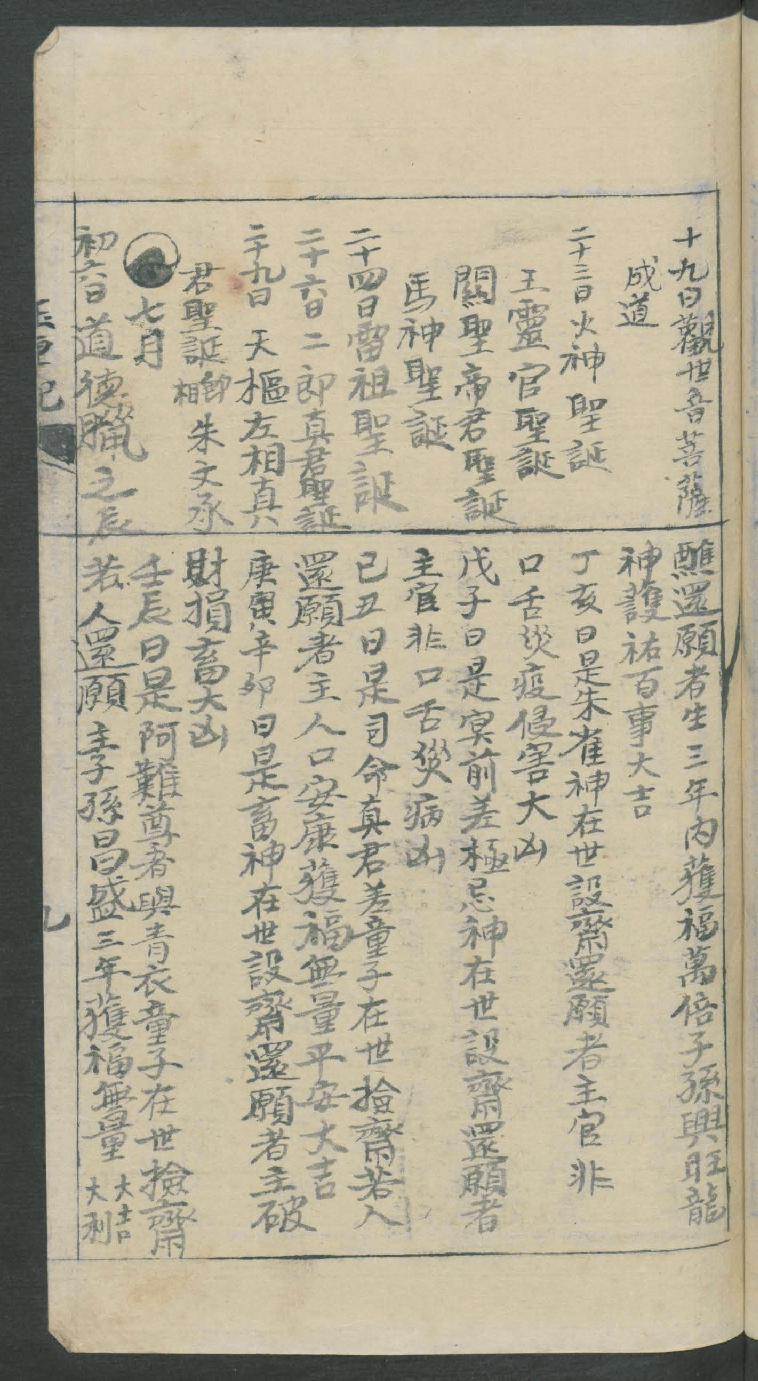 十九日觀世音菩薩
成道
二十三日火神聖誕
王靈官聖誕
關聖帝君聖誕
馬神聖誕
二十四日雷祖聖誕
二十六日二郎真君聖誕
二十九日天樞左相真
君聖誕即相朱文承
七月
初六日道德臘之辰
醮還願者生三年內獲福萬倍子孫興旺龍
神護祐百事大吉
丁亥日是朱雀神在世設齋還願者主官非
口舌災疫侵害大凶
戊子日是冥前差極忌神在世設齋還願者
主官非口舌災病凶
己丑日是司命真君差童子在世撿齋若人
還願者主人口安康獲福無量平安大吉
庚寅辛卯日是畜神在世設齋還願者主破
財損畜大凶
壬辰日是阿難尊者與青衣童子在世撿齋
若人還願主子孫昌盛三年獲福無量大吉大利
玉匣記
九